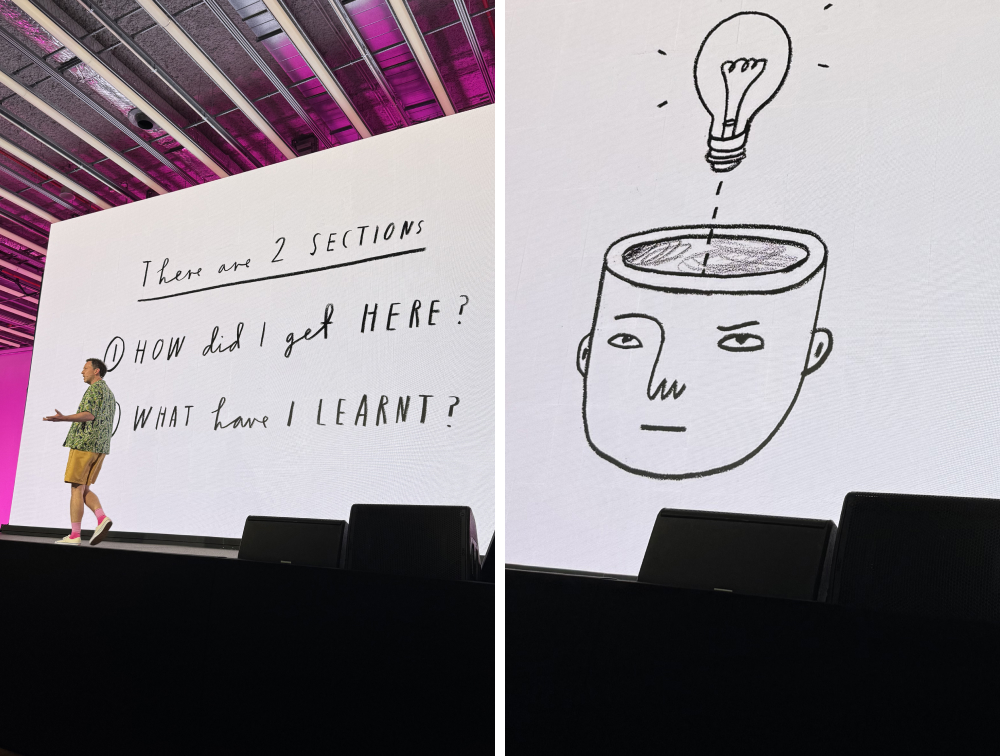 There are 2 SECTIONS
① HOW did I get HERE?
WHAT have I LEARNT?